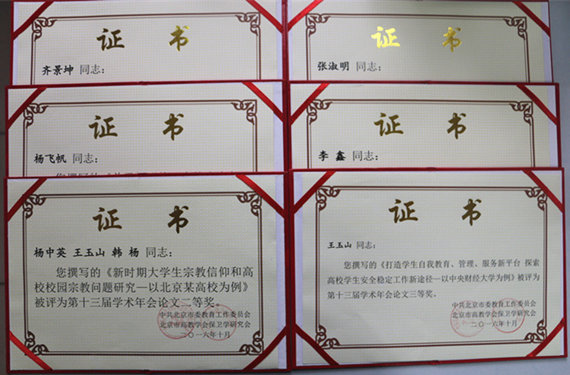 证 书
齐景坤 同志：
证 书
张淑明 同志：
证 书
杨飞帆 同志：
证 书
李 鑫 同志：
证 书
杨中英 王玉山 韩 杨 同志：
您撰写的《新时期大学生宗教信仰和高
校校园宗教问题研究—以北京某高校为例》
被评为第十三届学术年会论文二等奖。
中共北京市委教育工作委员会
北京市高教学会保卫学研究会
二〇一六年十月
证 书
王玉山 同志：
您撰写的《打造学生自我教育、管理、服务新平台 探索
高校学生安全稳定工作新途径—以中央财经大学为例》被评为
第十三届学术年会论文三等奖。
中共北京市委教育工作委员会
北京市高教学会保卫学研究会
二〇一六年十月